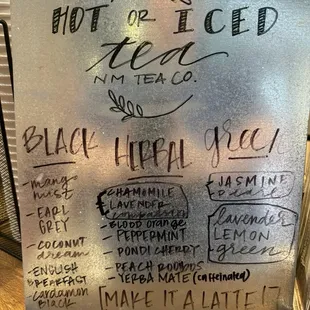 HOT OR ICED
tea
NM TEA CO.
BLACK
- mang
mist
- EARL
GREY
- COCONUT
dream
- ENGLISH
BREAKFAST
- cardamon
BLACK
HERBAL
- CHAMOMILE
LAVENDER
- BLOOD orange
- PEPPERMINT
- PONDICHERRY
- PEACH ROOIBOS
- YERBA MATE (caffeinated)
green
- JASMINE
lavender
LEMON
green
[MAKE IT A LATTE!]